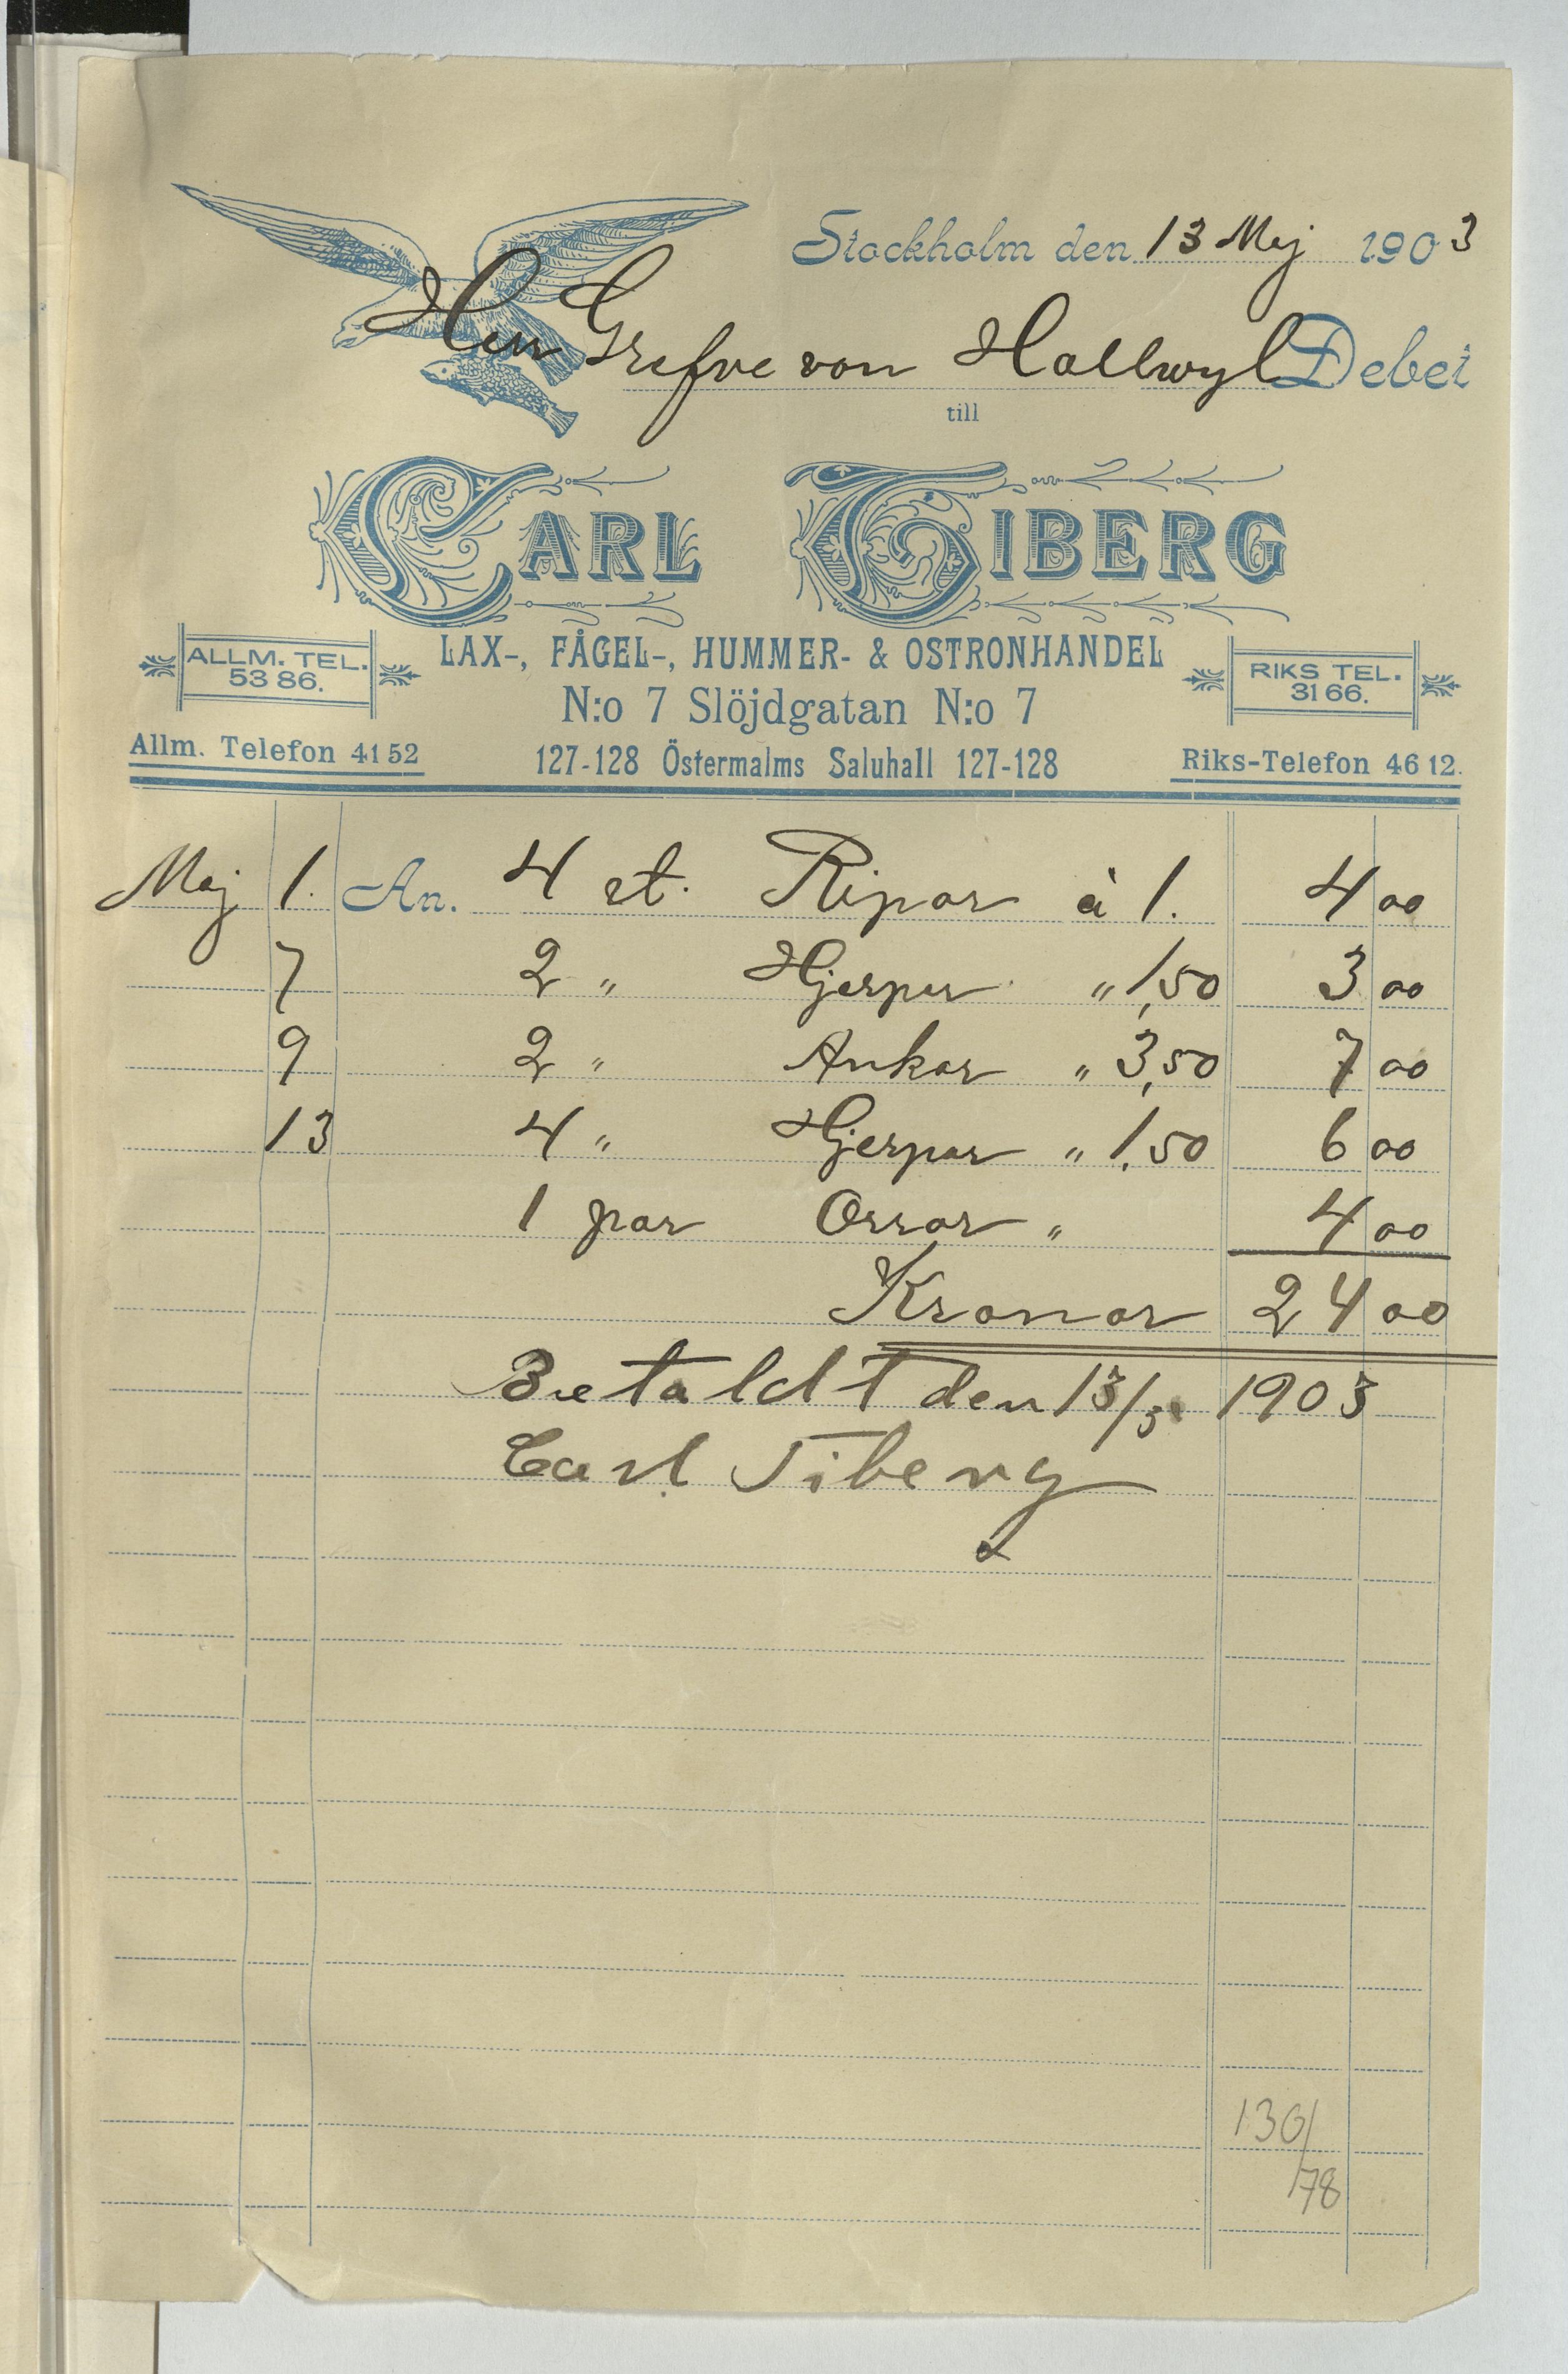 Stockholm den 13 Maj 1903
Herr Grefve von Hallwyl Debet
till
CARL TIBERG
LAX-, FÅGEL-, HUMMER- & OSTRONHANDEL
ALLM. TEL. 5386.
RIKS TEL. 3166.
N:o 7 Slöjdgatan N:o 7
Allm. Telefon 4152
127-128 Östermalms Saluhall 127-128
Riks-Telefon 4612.
Maj 1. An. 4 st. Ripor à 1. 4 00
7 2 " Hjerpar " 1,50 3 00
9 2 " Ankor " 3,50 7 00
13 4 " Hjerpar " 1,50 6 00
1 par Orrar " 4 00
Kronor 24 00
Betaldt den 13/5 1903
Carl Tiberg
130/
78